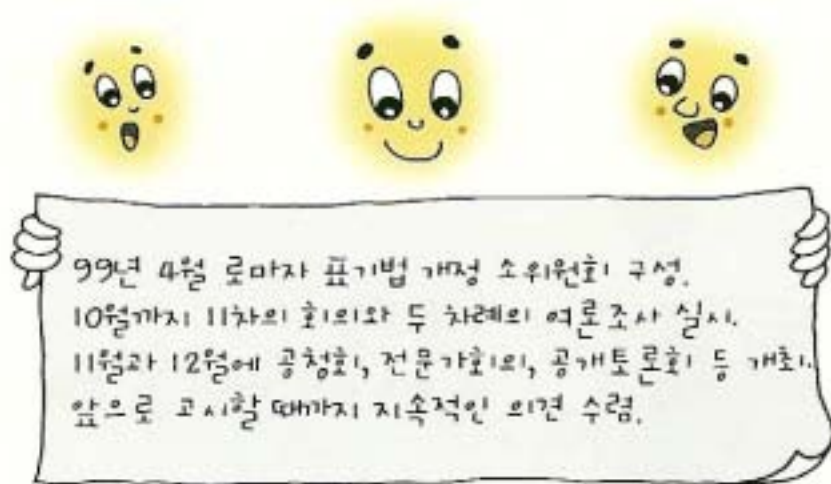 99년 4월 로마자 표기법 개정 소위원회 구성.
10월까지 11차의 회의와 두 차례의 여론조사 실시.
11월과 12월에 공청회, 전문가회의, 공개토론회 등 개최.
앞으로 고시할 때까지 지속적인 의견 수렴.